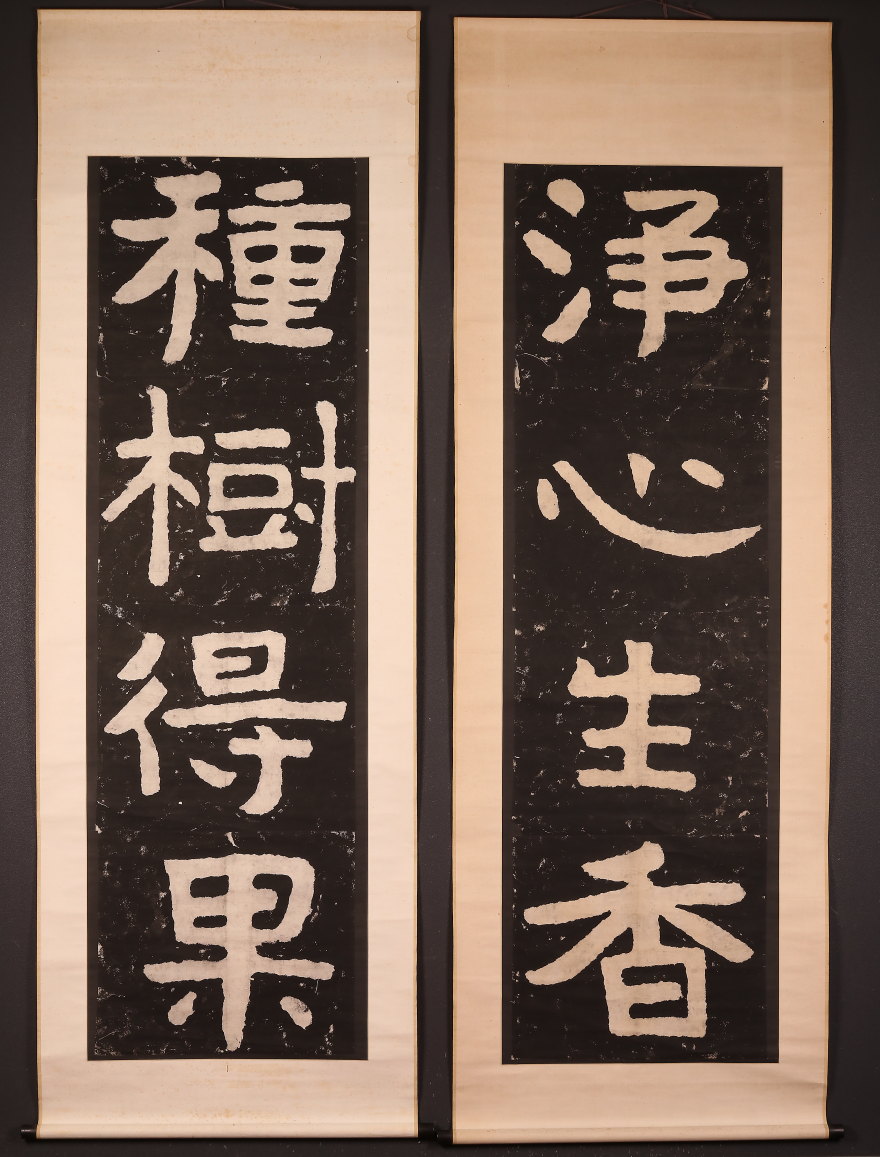 浄心生香
種樹得果